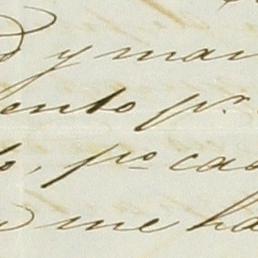 y man
ento pr.
o, po cas
me ha